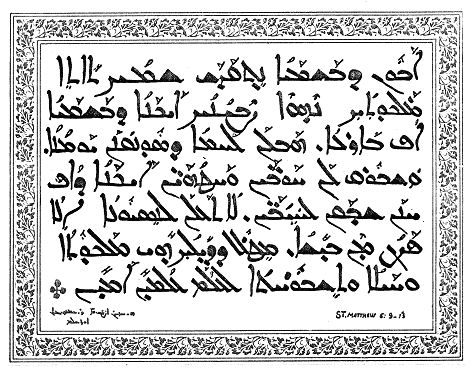 ܐܒܘܢ ܕܒܫܡܝܐ ܢܬܩܕܫ ܫܡܟ ܬܐܬܐ
ܡܠܟܘܬܟ ܢܗܘܐ ܨܒܝܢܟ ܐܝܟܢܐ ܕܒܫܡܝܐ
ܐܦ ܒܐܪܥܐ. ܗܒ ܠܢ ܠܚܡܐ ܕܣܘܢܩܢܢ ܝܘܡܢܐ.
ܘܫܒܘܩ ܠܢ ܚܘܒܝܢ ܘܚܛܗܝܢ ܐܝܟܢܐ ܕܐܦ
ܚܢܢ ܫܒܩܢ ܠܚܝܒܝܢ. ܠܐ ܬܥܠܢ ܠܢܣܝܘܢܐ ܐܠܐ
ܦܨܢ ܡܢ ܒܝܫܐ. ܡܛܠ ܕܕܝܠܟ ܗܝ ܡܠܟܘܬܐ
ܘܚܝܠܐ ܘܬܫܒܘܚܬܐ ܠܥܠܡ ܥܠܡܝܢ ܐܡܝܢ
ST. MATTHEW 6: 9-13